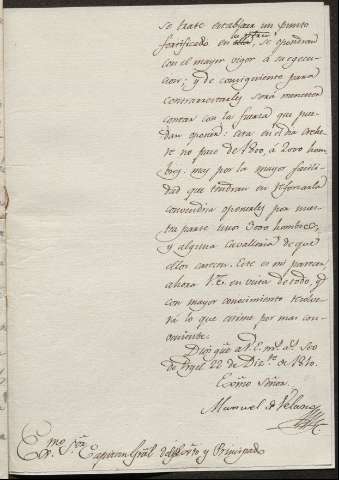 se trate establezca un punto
fortificado en ella, se opondran
con el mayor vigor á su egecu-
cion; y de consiguiente para
contrarrestarles será menester
contar con la fuerza que pue-
dan oponer: esta en el dia
no pasa de 1800, á 2000 hom-
bres; mas por la mayor facili-
dad que tendran en reforzarla
convendria oponerles por nues-
tra parte unos 3000 hombres,
y alguna Cavalleria de que
ellos carecen. Este es mi parecer
ahora V.E. en vista de todo, y
con mayor conocimiento resolve-
rá lo que estime por mas con-
veniente.
Dios gũe á V.E. m.s a.s Seo
de Urgel 22 de Diz.re de 1810.
Exmo Señor.
Manuel de Velasco
Exmo. S.or Capitan Gral. del Exto y Principado